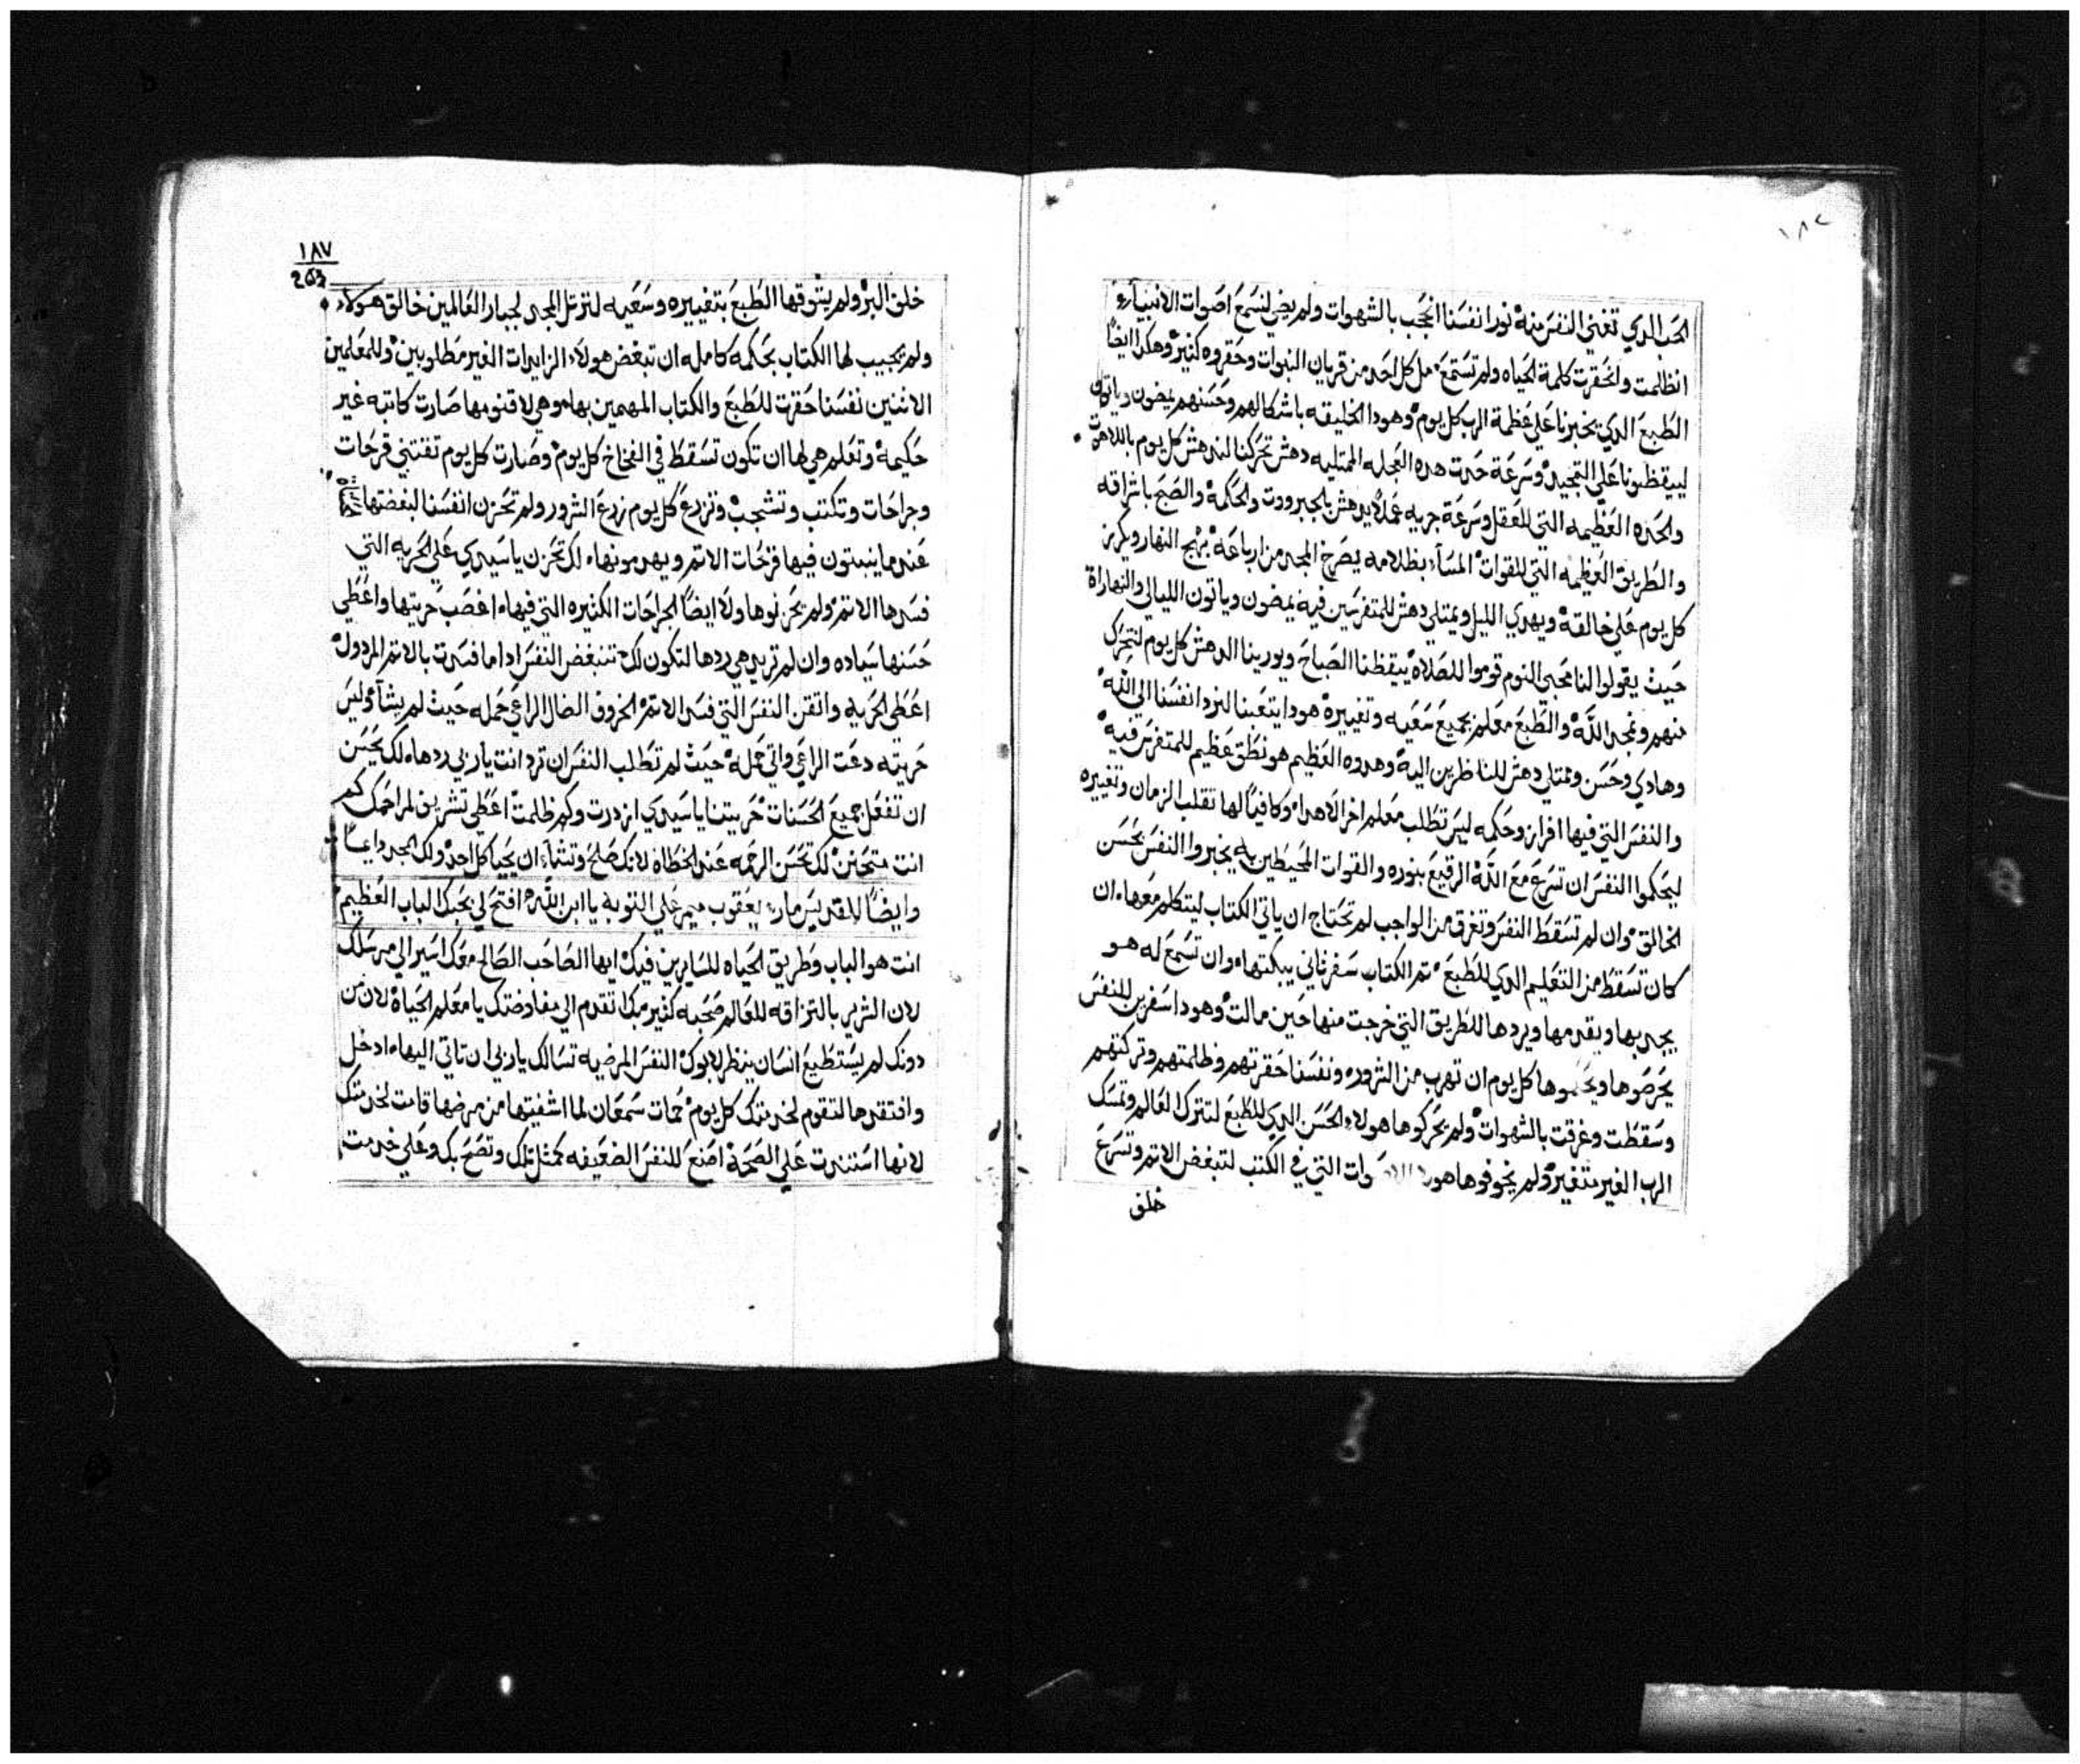 الحب الدي تغني النفس منه نور انفسنا انحجب بالشهوات ولم يضي لنسمع اصوات الانبياء
انظلمت وانحقرت كلمة الحياه ولم تستمع من كل احد من قريان النبوات وحقروه كتير وهكدا ايضًا
الطبع الدي يخبرنا علي عظمة الرب كل يوم وهودا الخليقه باشكالهم وحسنهم يمضون وياتون
ليقظونا علي التمجيد وسرعة حدت هده العجله الممتليه دهش تحركنا لندهش كل يوم باللاهوت
والحده العظيمه التي للعقل وسرعة جريه عملاً يدهش بالجبروت والحكمة والصبح باشراقه
والطريق العظيمه التي للقوات المساء بظلامه يصرخ المجد من ارباعه بزيح النهار ويكرز
كل يوم علي خالقه ويهدي الليل ويمتلي دهش للمتفرسين فيه يمضون وياتون الليالي والنهاراة
حيث يقولوا لنا محبي النوم قوموا للصلاة يقظنا الصباح ويورينا الدهش كل يوم لنتحرك
منهم ونمجد الله والطبع معلم بجميع سعيه وتغييره هودا يتعبنا لنرد انفسنا الي الله
وهادي وحسن وممتلي دهش للناظرين اليه وهدوه العظيم هو نطق عظيم للمتفرس فيه
والنفس التي فيها افراز وحكمه ليس تطلب معلم اخر الا هدا وكافيًا لها تقلب الزمان وتغييره
ليحكموا النفس ان تسرع مع الله الرقيع بنوره والقوات المحيطين به يخبروا النفس بحسن
الخالق وان لم تسقط النفس وتغرق من الواجب لم تحتاج ان ياتي الكتاب ليتكلم معها ان
كان تسقط من التعليم الدي للطبع تم الكتاب سفر تاني يبكتها وان تسمع له هو
يجدبها ويقدمها ويردها للطريق التي خرجت منها حين مالت وهودا سفرين للنفس
يحرضوها ويحكموها كل يوم ان تهرب من الشرور ونفسنا حقرتهم وظلمتهم وتركتهم
وسقطت وغرقت بالشهوات ولم يحركوها هولاء الحسن الدي للطبع لتترك العالم وتمسك
الرب الغير متغير ولم يخوفوها وات التي في الكتب لتبغض الاتم وتسرع
خلف
١٨٧
263
خلف البر ولم يشوقها الطبع بتغييره وسعيه لترتل المجد لجبار العالمين خالق هولاء
ولم تجيب لها الكتاب بحكمه كامله ان تبغض هولاء الزايدات الغير مطلوبين وللمعلمين
الاتنين نفسنا حقرت للطبع والكتاب المهمين بها وهي لاقنومها صارت كاتبه غير
حكيمة وتعلم هي لها ان تكون تسقط في الفخاخ كل يوم وصارت كل يوم تقتني قرحات
وجراحات وتكتب وتشجب وتزرع كل يوم زرع الشرور ولم تحزن انفسنا لبغضتها
عندما ينبتون فيها قرحات الاتم ويهدمونها لك تحزن ياسيدي علي الحريه التي
فسدها الاتم ولم يحزنوها ولا ايضًا الجراحات الكتيره التي فيها اغصب حريتها واعطي
حسنها سياده وان لم تريد هي ردها لتكون لك تتبغض النفس ادا ما فسدت بالاتم المردول
اعطي الحريه واتقن النفس التي فسد الاتم الخروف الضال الراعي حمله حيث لم يشاء وليس
حريته دعت الراعي واتي حمله حيث لم تطلب النفس ان ترد انت يارب ردها لك يحسن
ان تفعل جميع الحسنات حريتنا ياسيدي ازدرت وكم ظلمت اعطي تشريق لمراحمك كم
انت متحنن لك تحسن الرحمه عند الخطاه لانك صلح وتشاء ان يحيا كل احد ولك المجد دايمًا
وايضًا للقديس مار يعقوب ميمر علي التوبة يا ابن الله افتح لي بحبك الباب العظيم
انت هو الباب وطريق الحياه للسايرين فيك ايها الصاحب الصالح معك اسير الي مرسلك
لان الشرير بالتزاقه للعالم صحبه كتير مبكا تقدم الي مفاوضتك يا معلم الحياة لان من
دونك لم يستطيع انسان ينظر لابوك النفس المرضيه تسالك يارب ان تاتي اليها ادخل
وافتقدها لتقوم لخدمتك كل يوم حمات سمعان لما اشفيتها من مرضها قامت لخدمتك
لانها استندت علي الصحة اصنع للنفس الضعيفه كمثل تلك وتصح بك وعلي خدمت